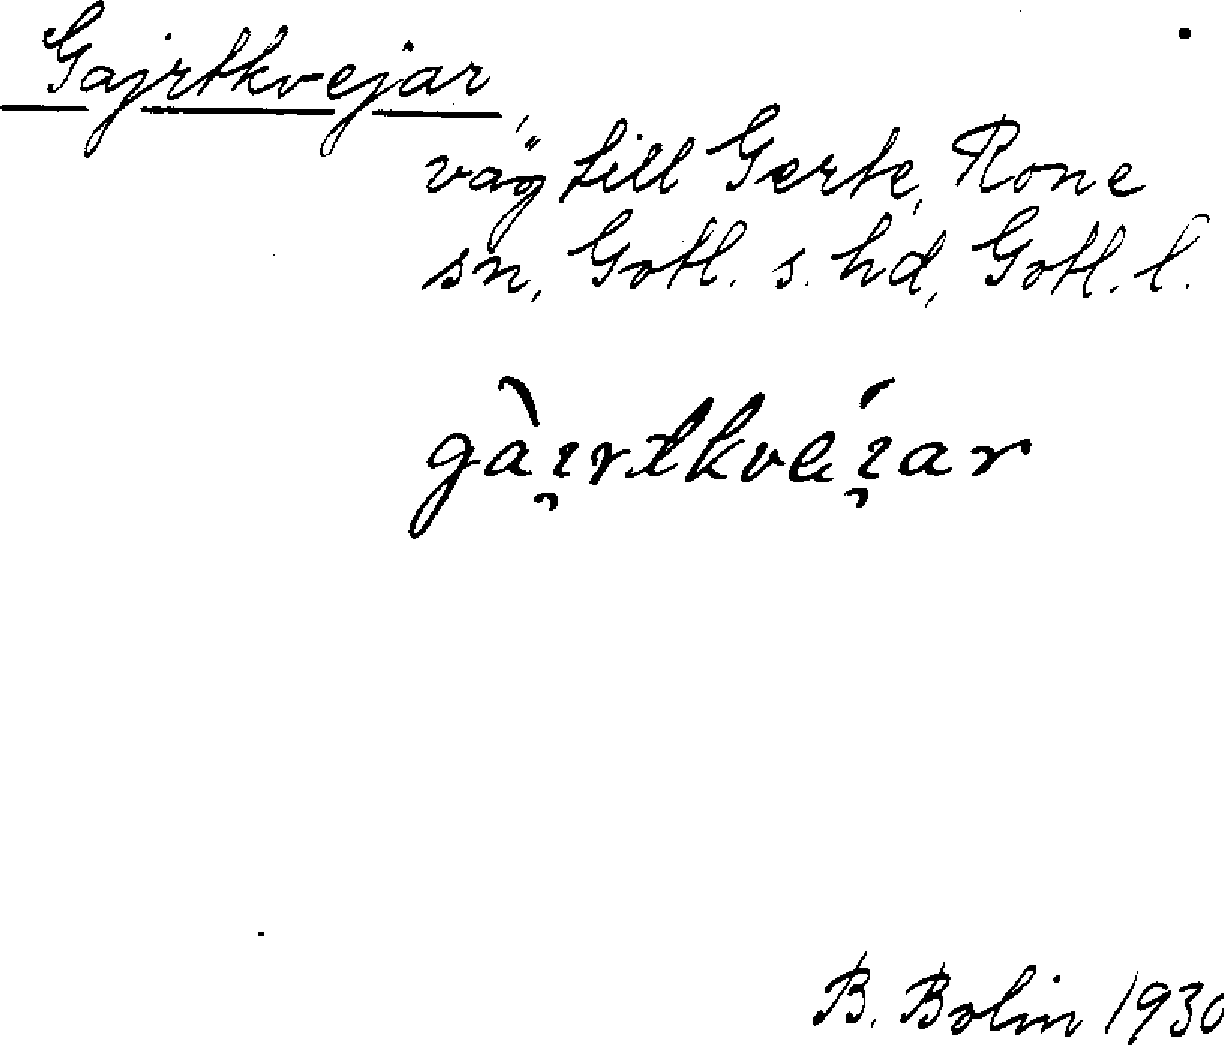 Gajrtkvejar,
väg till Gerte, Rone
sn, Gotl. s. hd, Gotl. l.
gàı̯rtkveı̯́ar
B. Bolin 1930